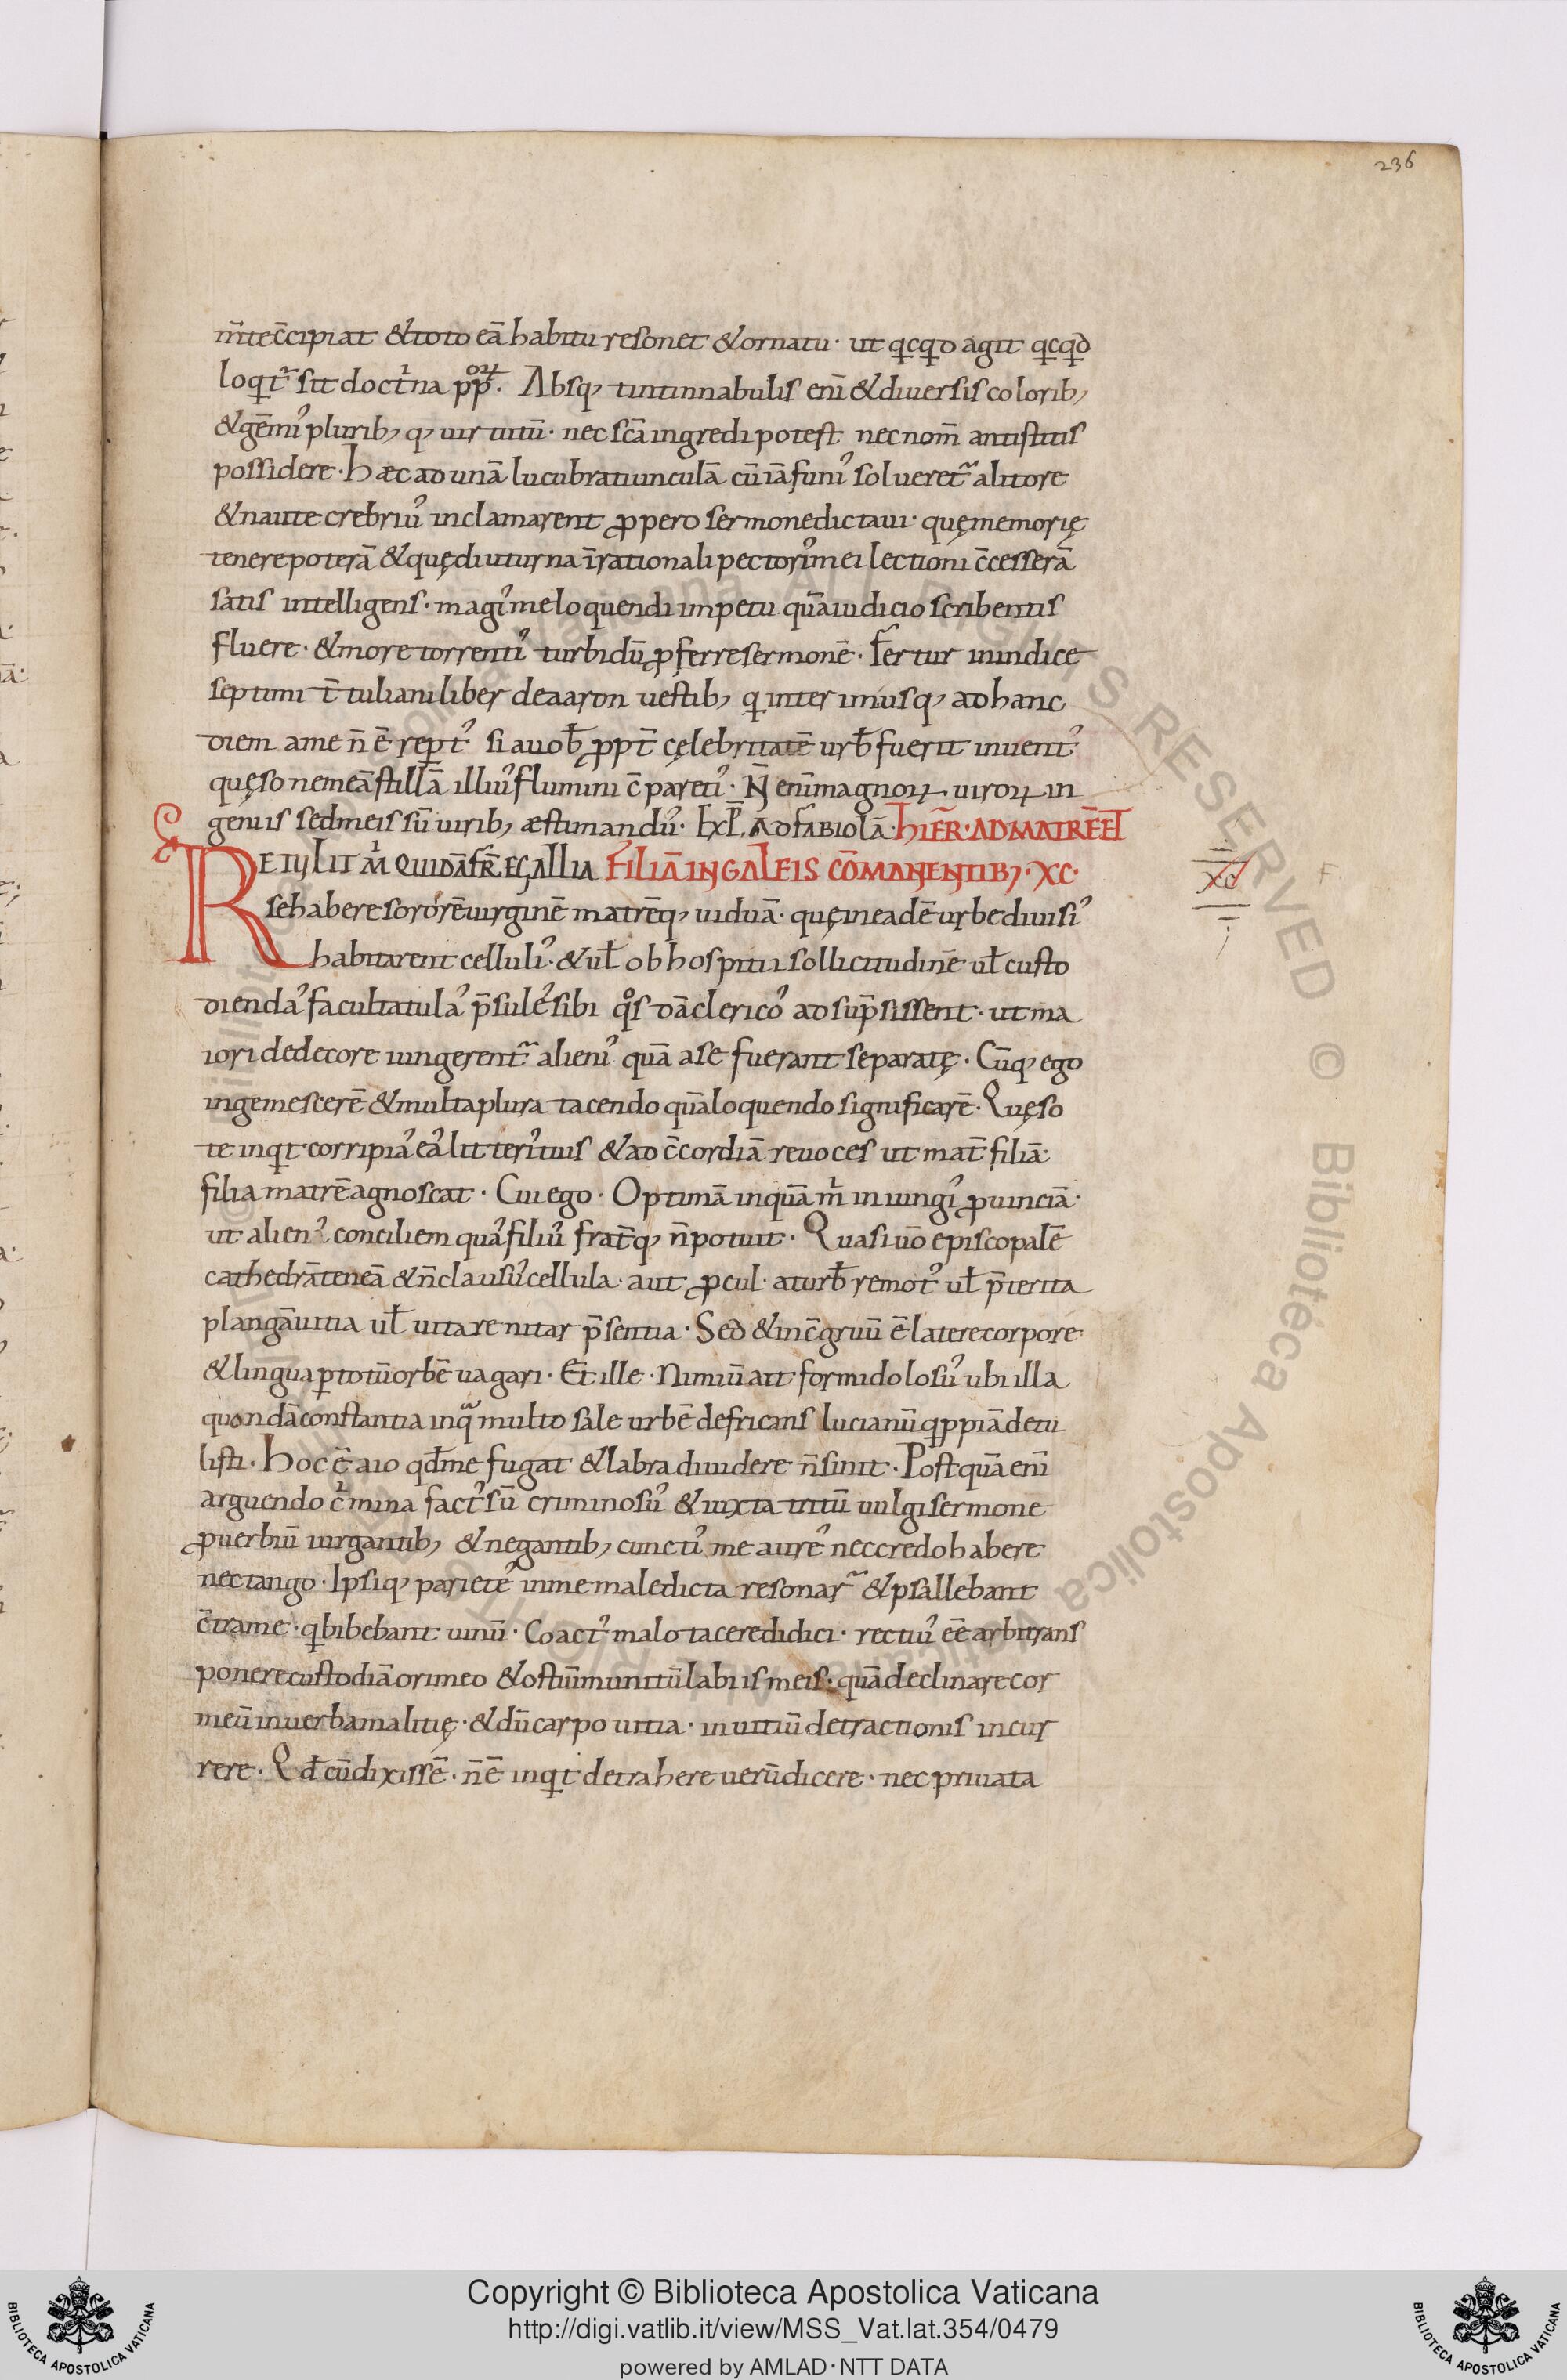 236
m̄te c̄cipiat & toto eā habitu resonet & ornatu· ut qcqd agit qcqd
loqt᷑ sit doctͥna pp̊ꝝ. Absq, tintinnabulis eni̅ & diuersis colorib,
& gēmiˀ plurib, q, uirtutū· nec sc̄a ingredi potest nec nom̄ antistitis
possidere· Haec ad unā lucubratiunculā cū iā funiˀ solueret᷑ a litore
& naute crebriuˀ inclamarent ꝓpero sermone dictaui· quę memorię
tenere poterā & quę diuturna ī rationali pectoriˀ mei lectioni c̄cesserā
satis intelligens· magiˀ me loquendi impetu quā iudicio scribentis
fluere· & more torrentiˀ turbidū ꝓferre sermonē· Fertur in indice
septimi t̄tuliani liber de aaron uestib, q interim usq, ad hanc
diem a me n̄ ē rep̱tˀ si a uob̄ ꝓpt̄ cęlebritatē urb̄ fuerit inuentˀ
quęso ne meā stillā illiuˀ flumini c̄paretiˀ· N̄ eni̅ magnoꝝ uiroꝝ in
geniis sed meis sū uirib, æstimanduˀ· Exp̄, AD FABIOLĀ· HIER̄· AD MATRĒ ET
RETULIT M̊ QUIDĀ FR̄ E GALLIA FILIĀ IN GALEIS CŌMANENTIB,· XC·
se habere sororē uirginē matrēq, uiduā· quę in eadē urbe diuisiˀ
XC
habitarent celluliˀ· & ul̄ ob hospitii sollicitudinē ul̄ custo
diendaˀ facultatulaˀ p̄suleˀ sibi qͦsdā clericoˀ adsūp̄sissent· ut ma
iori dedecore iungerent᷑ alieniˀ quā a se fuerant separatę· Cūq, ego
ingemescerē & multa plura tacendo quā loquendo significarē· Quęso
te inqt corripiaˀ eaˀ litteriˀ tuis & ad c̄cordiā reuoces ut mat̄ filiā·
filia matrē agnoscat· Cui ego· Optimā inquā m̊ iniungiˀ ꝓuinciā·
ut alienˀ conciliem quaˀ filiuˀ frat̄q, n̄ potuit· Quasi uō episcopalē
cathedrā teneā & n̄ clausuˀ cellula· aut ꝓcul· a turb̄ remotˀ ul̄ p̄terita
plangā uitia ul̄ uitare nitar p̄sentia· Sed & inc̄gruū ē latere corpore·
& lingua ꝑ totū orbē uagari· Et ille· Nimiū ait formidolosuˀ ubi illa
quondā constantia in qͣ multo sale urbē defricans lucianū qppiā detu
listi· Hoc ē aio qd̄ me fugat & labra diuidere n̄ sinit· Postquā eni̅
arguendo cͥmina factˀ sū criminosuˀ & iuxta tritū uulgi sermone
ꝓuerbiū iurgantib, & negantib, cunctiˀ me aureˀ nec credo habere
nec tango· Ipsiq, parieteˀ in me maledicta resonar᷑ & psallebant
c̄tra me· q bibebant uinū· Coactˀ malo tacere didici· rectiuˀ eē arbitrans
ponere custodiā ori meo & ostiū munitū labiis meis· quā declinare cor
meū in uerba malitię· & dū carpo uitia· in uitiū detractionis incur
rere· Qd̄ cū dixissē· n̄ ē inqt detrahere uerū dicere· nec priuata
Copyright © Biblioteca Apostolica Vaticana
http://digi.vatlib.it/view/MSS_Vat.lat.354/0479
powered by AMLAD·NTT DATA
BIBLIOTECA APOSTOLICA VATICANA
BIBLIOTECA APOSTOLICA VATICANA